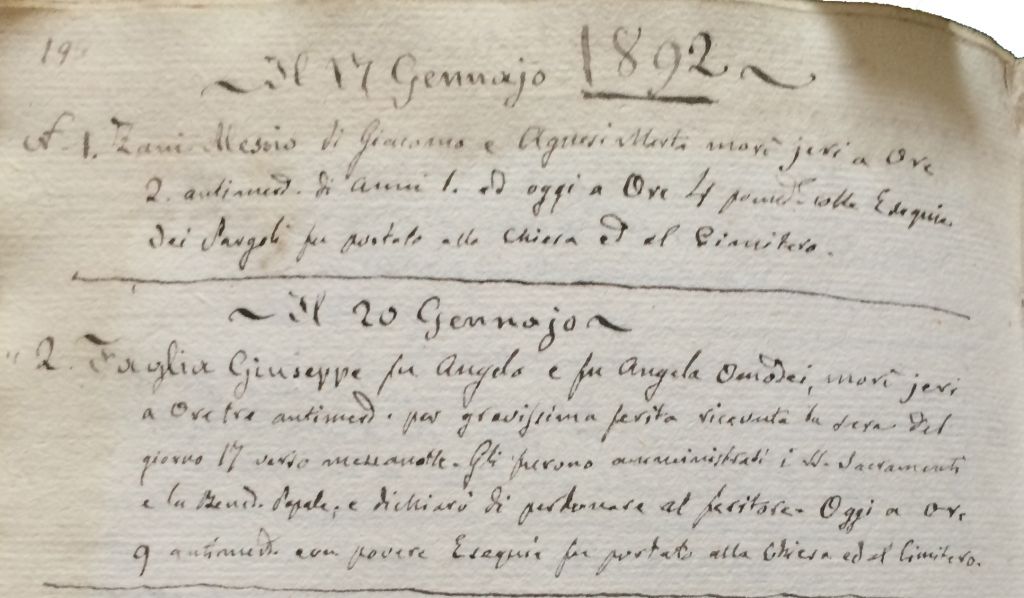 19
~ Il 17 Gennajo 1892 ~
N. 1. Zani Messio di Giacomo e Agnesi Marta morì jeri a Ore
2. antimerd. di anni 1. ed oggi a Ore 4 pomerd. colle Esequie
dei Pargoli fu portato alla Chiesa ed al Cimitero.
~ Il 20 Gennajo ~
" 2. Faglia Giuseppe fu Angelo e fu Angela Omodei, morì jeri
a Ore tre antimerd. per gravissima ferita ricevuta la sera del
giorno 17 verso mezzanotte. Gli furono amministrati i SS. Sacramenti
e la Bened. Papale, e dichiarò di perdonare al feritore. Oggi a Ore
9 antimerd. con povere Esequie fu portato alla Chiesa ed al Cimitero.